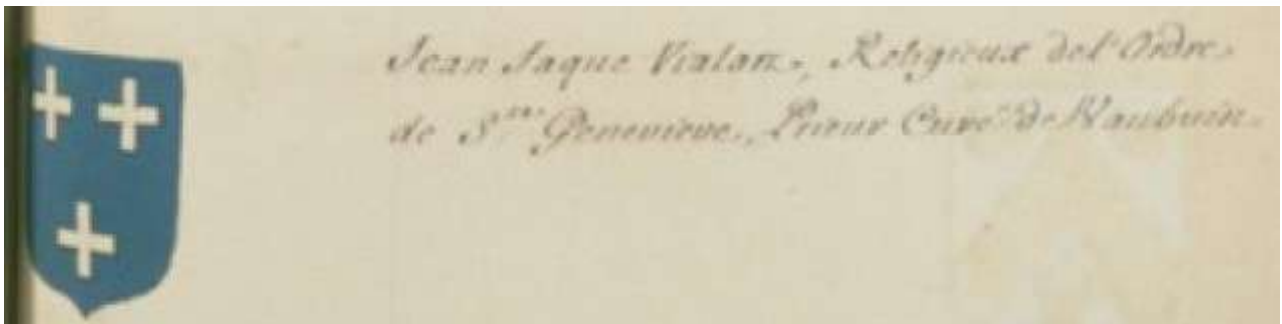 Jean Jaque Vialart, Religieux del'Ordre
de S.te Genevieve, Prieur Curé de Vaubuin.